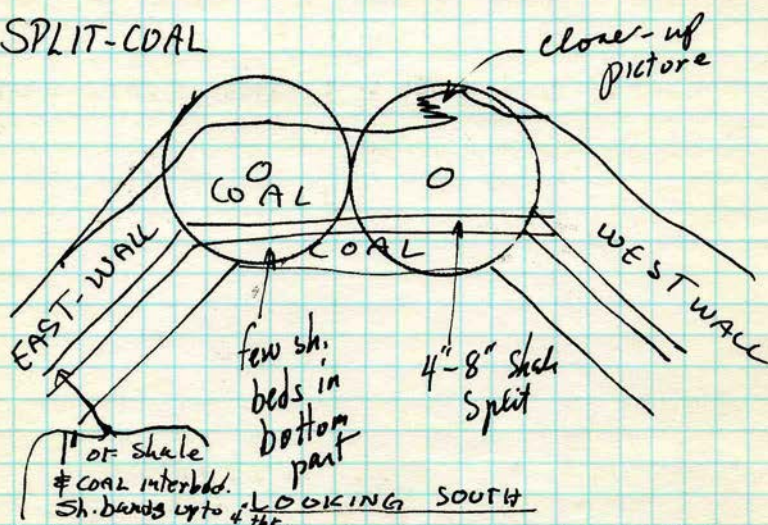 SPLIT-COAL
close-up
picture
COAL
COAL
EAST-WALL
WEST WALL
few sh.
beds in
bottom
part
4"-8" Shale
Split
1' of shale
& COAL interbdd.
Sh. bands up to 4" thk
LOOKING SOUTH